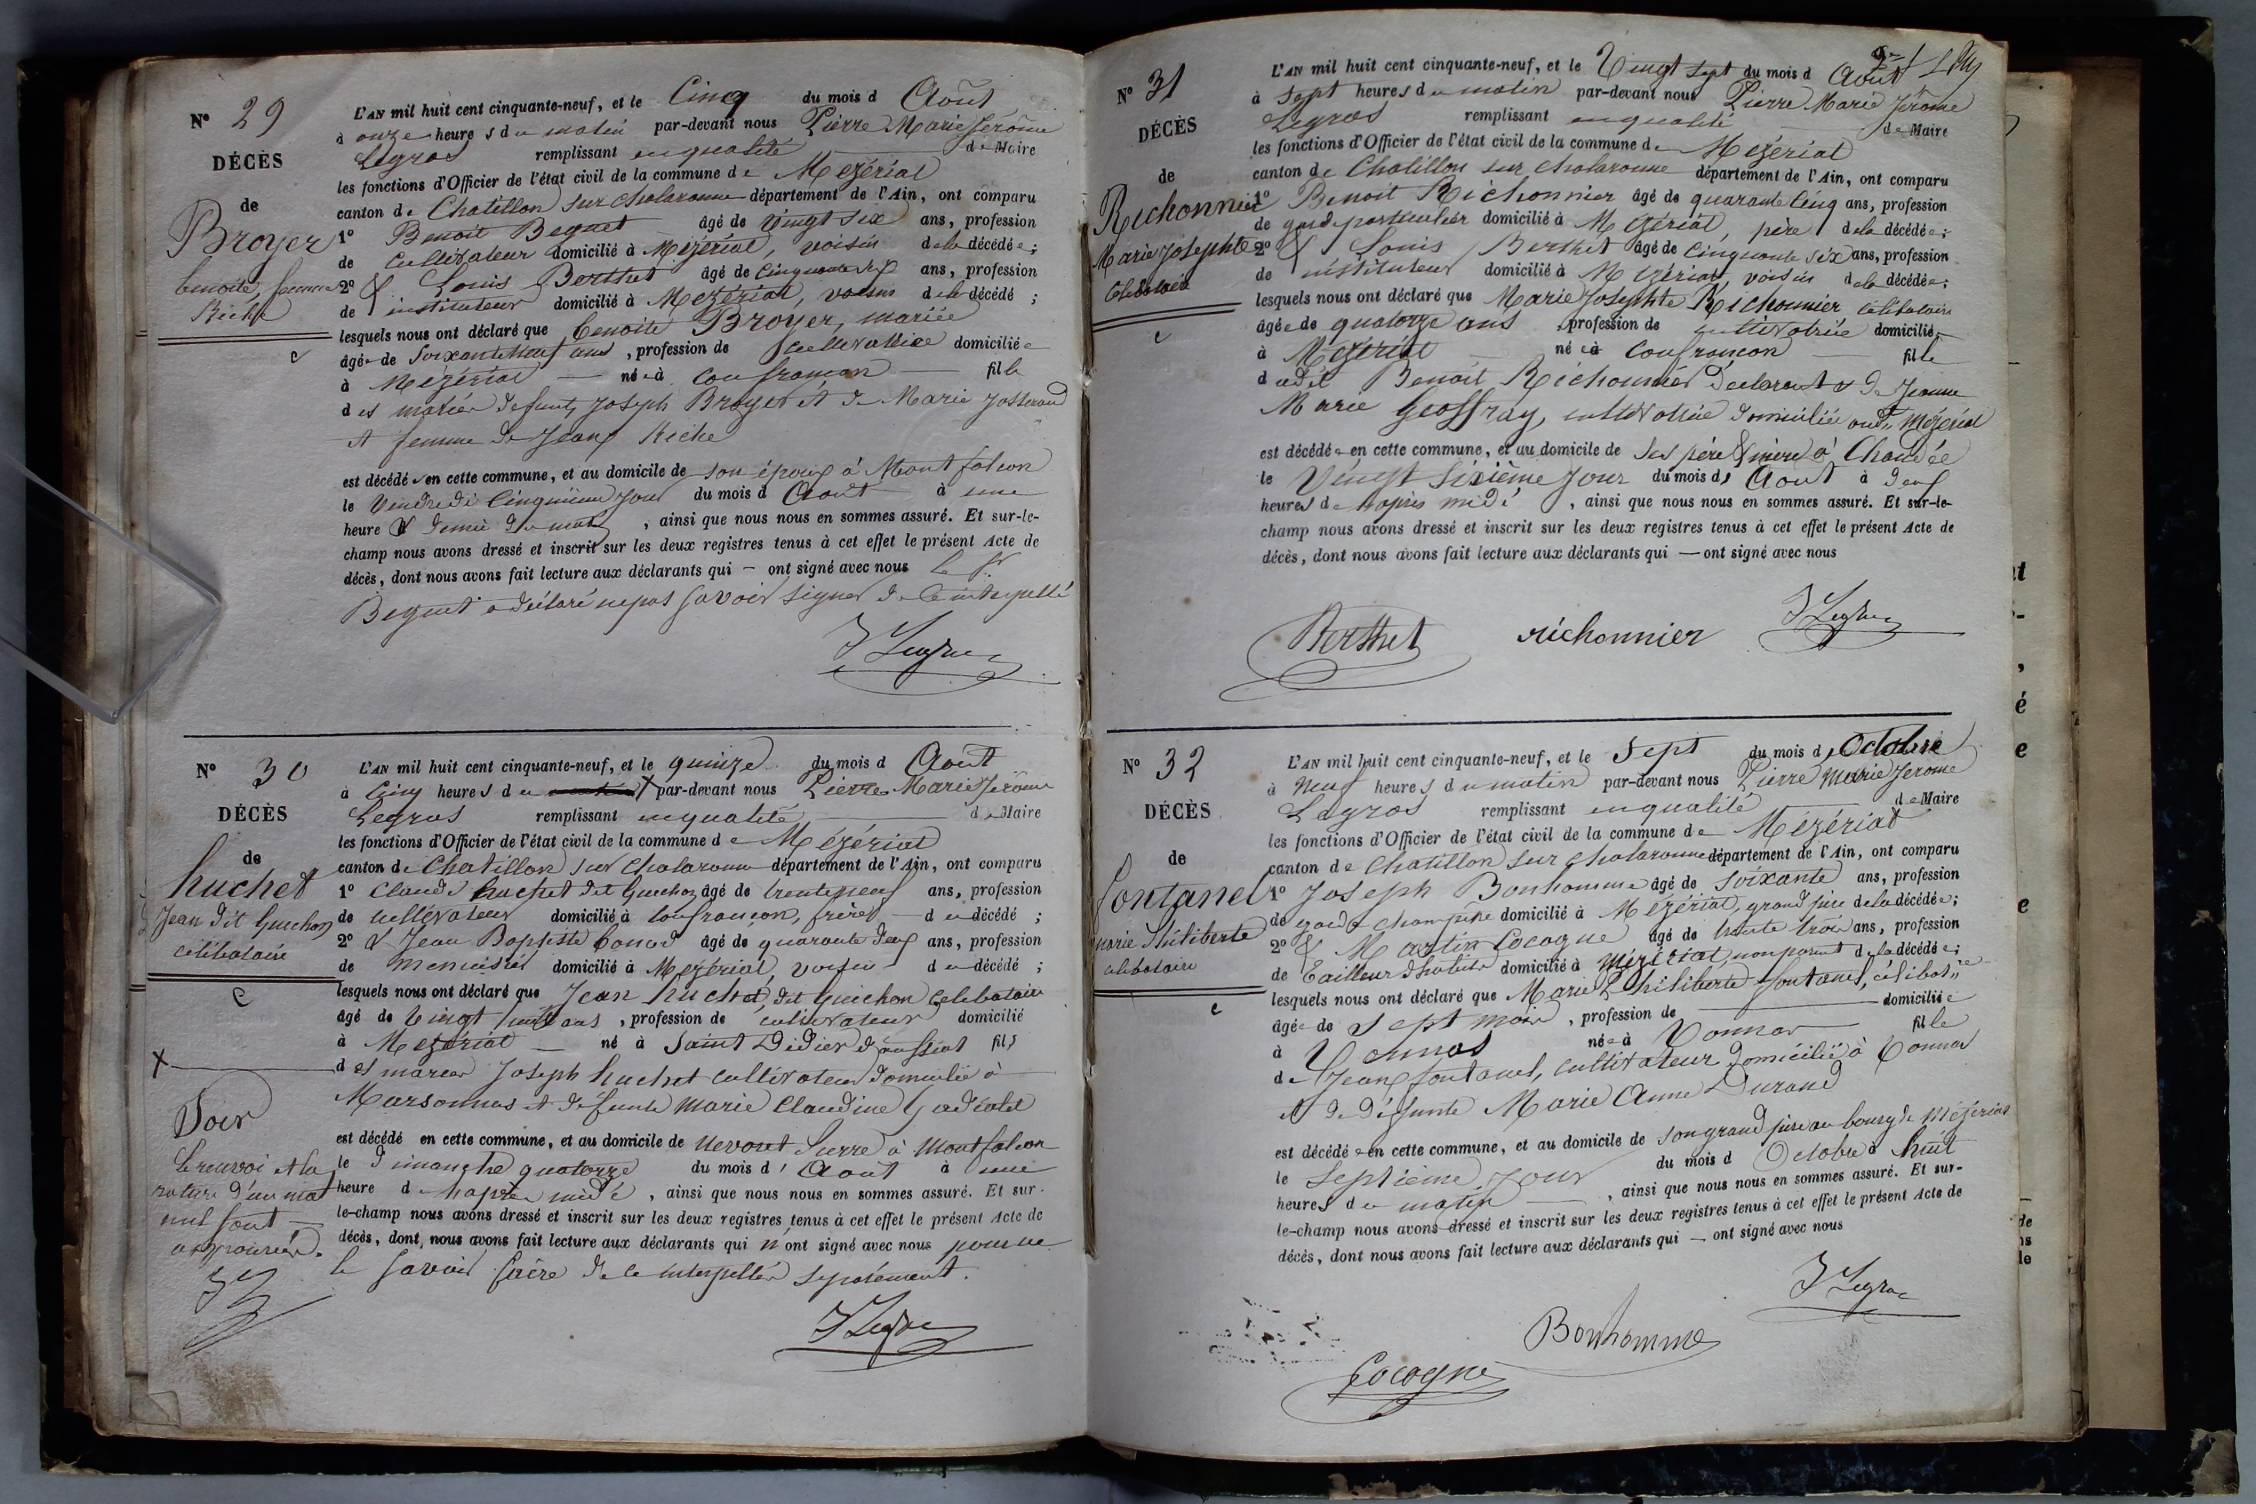 N° 29
DÉCÈS
de
Broyer
benoite, femme
Riche
L'AN mil huit cent cinquante-neuf, et le Cinq du mois d Août
à onze heures du matin par-devant nous Pierre Marie Jérôme
Legros remplissant en qualité de Maire
les fonctions d'Officier de l'état civil de la commune de Mézériat
canton de Chatillon sur chalaronne département de l'Ain, ont comparu
1° Benoit Beguet âgé de vingt six ans, profession
de cultivateur domicilié à Mézériat, voisin de la décédée;
2° & Louis Berthet âgé de cinquante six ans, profession
de instituteur domicilié à Mézériat, voisin de la décédé;
lesquels nous ont déclaré que benoite Broyer, mariée
âgée de soixante neuf ans, profession de cultivatrice domiciliée
à Mézériat née à Confrançon fille
des mariés defunts Joseph Broyer et de Marie Josserand
et femme de Jean Riche
est décédée en cette commune, et au domicile de son époux à Montfalcon
le Vendredi cinquième jour du mois d Août à une
heure & demie du matin, ainsi que nous nous en sommes assuré. Et sur-le-
champ nous avons dressé et inscrit sur les deux registres tenus à cet effet le présent Acte de
décès, dont nous avons fait lecture aux déclarants qui — ont signé avec nous le Sr
Beguet a déclaré ne pas savoir signer de ce interpellé
J Legros
N° 30
DÉCÈS
de
huchet
Jean dit Guichon
célibataire
L'AN mil huit cent cinquante-neuf, et le quinze du mois d Août
à cinq heures du par-devant nous Pierre Marie Jérôme
Legros remplissant en qualité de Maire
les fonctions d'Officier de l'état civil de la commune de Mézériat
canton de Chatillon sur chalaronne département de l'Ain, ont comparu
1° Claude huchet dit Guichon âgé de trente neuf ans, profession
de cultivateur domicilié à Confrançon, frère du décédé;
2° & Jean Baptiste âgé de quarante deux ans, profession
de menuisier domicilié à Mézériat, voisin du décédé;
lesquels nous ont déclaré que Jean huchet dit Guichon célibataire
âgé de vingt ans, profession de cultivateur domicilié
à Mézériat né à Saint Didier d'aussiat fils
des mariés Joseph huchet cultivateur domicilié à
Marsonnas et défunte Marie Claudine
est décédé en cette commune, et au domicile de Nevoret Pierre à Montfalcon
le dimanche quatorze du mois d'Août à une
heure de l'après midi, ainsi que nous nous en sommes assuré. Et sur-
le-champ nous avons dressé et inscrit sur les deux registres tenus à cet effet le présent Acte de
décès, dont nous avons fait lecture aux déclarants qui n'ont signé avec nous pour ne
le savoir faire de ce interpellés séparément.
X
Soir
le renvoi et la
rature d'un mot
nul sont
approuvés.
J L
J Legros
N° 31
DÉCÈS
de
Richonnier
Marie Josephte
célibataire
L'AN mil huit cent cinquante-neuf, et le Vingt sept du mois d Août
à sept heures du matin par-devant nous Pierre Marie Jérôme
Legros remplissant en qualité de Maire
les fonctions d'Officier de l'état civil de la commune de Mézériat
canton de Chatillon sur chalaronne département de l'Ain, ont comparu
1° Benoit Richonnier âgé de quarante cinq ans, profession
de garde particulier domicilié à Mézériat, père de la décédée;
2° & Louis Berthet âgé de cinquante six ans, profession
de instituteur domicilié à Mézériat, voisin de la décédée;
lesquels nous ont déclaré que Marie Josephte Richonnier célibataire
âgée de quatorze ans, profession de cultivatrice domiciliée
à Mézériat née à Confrançon fille
dudit Benoit Richonnier déclarant & de Jeanne
Marie Geoffray, cultivatrice domiciliée audit Mézériat
est décédée en cette commune, et au domicile de ses père & mère à Chandée
le Vingt sixième jour du mois d'Août à deux
heures de l'après midi, ainsi que nous nous en sommes assuré. Et sur-le-
champ nous avons dressé et inscrit sur les deux registres tenus à cet effet le présent Acte de
décès, dont nous avons fait lecture aux déclarants qui — ont signé avec nous
Berthet richonnier J Legros
N° 32
DÉCÈS
de
fontanel
marie Philiberte
célibataire
L'AN mil huit cent cinquante-neuf, et le Sept du mois d Octobre
à Neuf heures du matin par-devant nous Pierre Marie Jérome
Legros remplissant en qualité de Maire
les fonctions d'Officier de l'état civil de la commune de Mézériat
canton de Chatillon sur chalaronne département de l'Ain, ont comparu
1° Joseph Bonhomme âgé de soixante ans, profession
de garde champêtre domicilié à Mézériat, grand père de la décédée;
2° & Martin Cocogne âgé de trente trois ans, profession
de Tailleur d'habits domicilié à Mézériat, non parent de la décédée;
lesquels nous ont déclaré que Marie Philiberte fontanel, célibatre
âgée de sept mois, profession de domiciliée
à Vonnas née à Vonnas fille
de Jean fontanel, cultivateur domicilié à Vonnas
et de défunte Marie Anne Durand
est décédée en cette commune, et au domicile de son grand père au bourg de Mézériat
le septième jour du mois d Octobre à huit
heures du matin, ainsi que nous nous en sommes assuré. Et sur-
le-champ nous avons dressé et inscrit sur les deux registres tenus à cet effet le présent Acte de
décès, dont nous avons fait lecture aux déclarants qui — ont signé avec nous
J Legros
Bonhomme
Cocogne